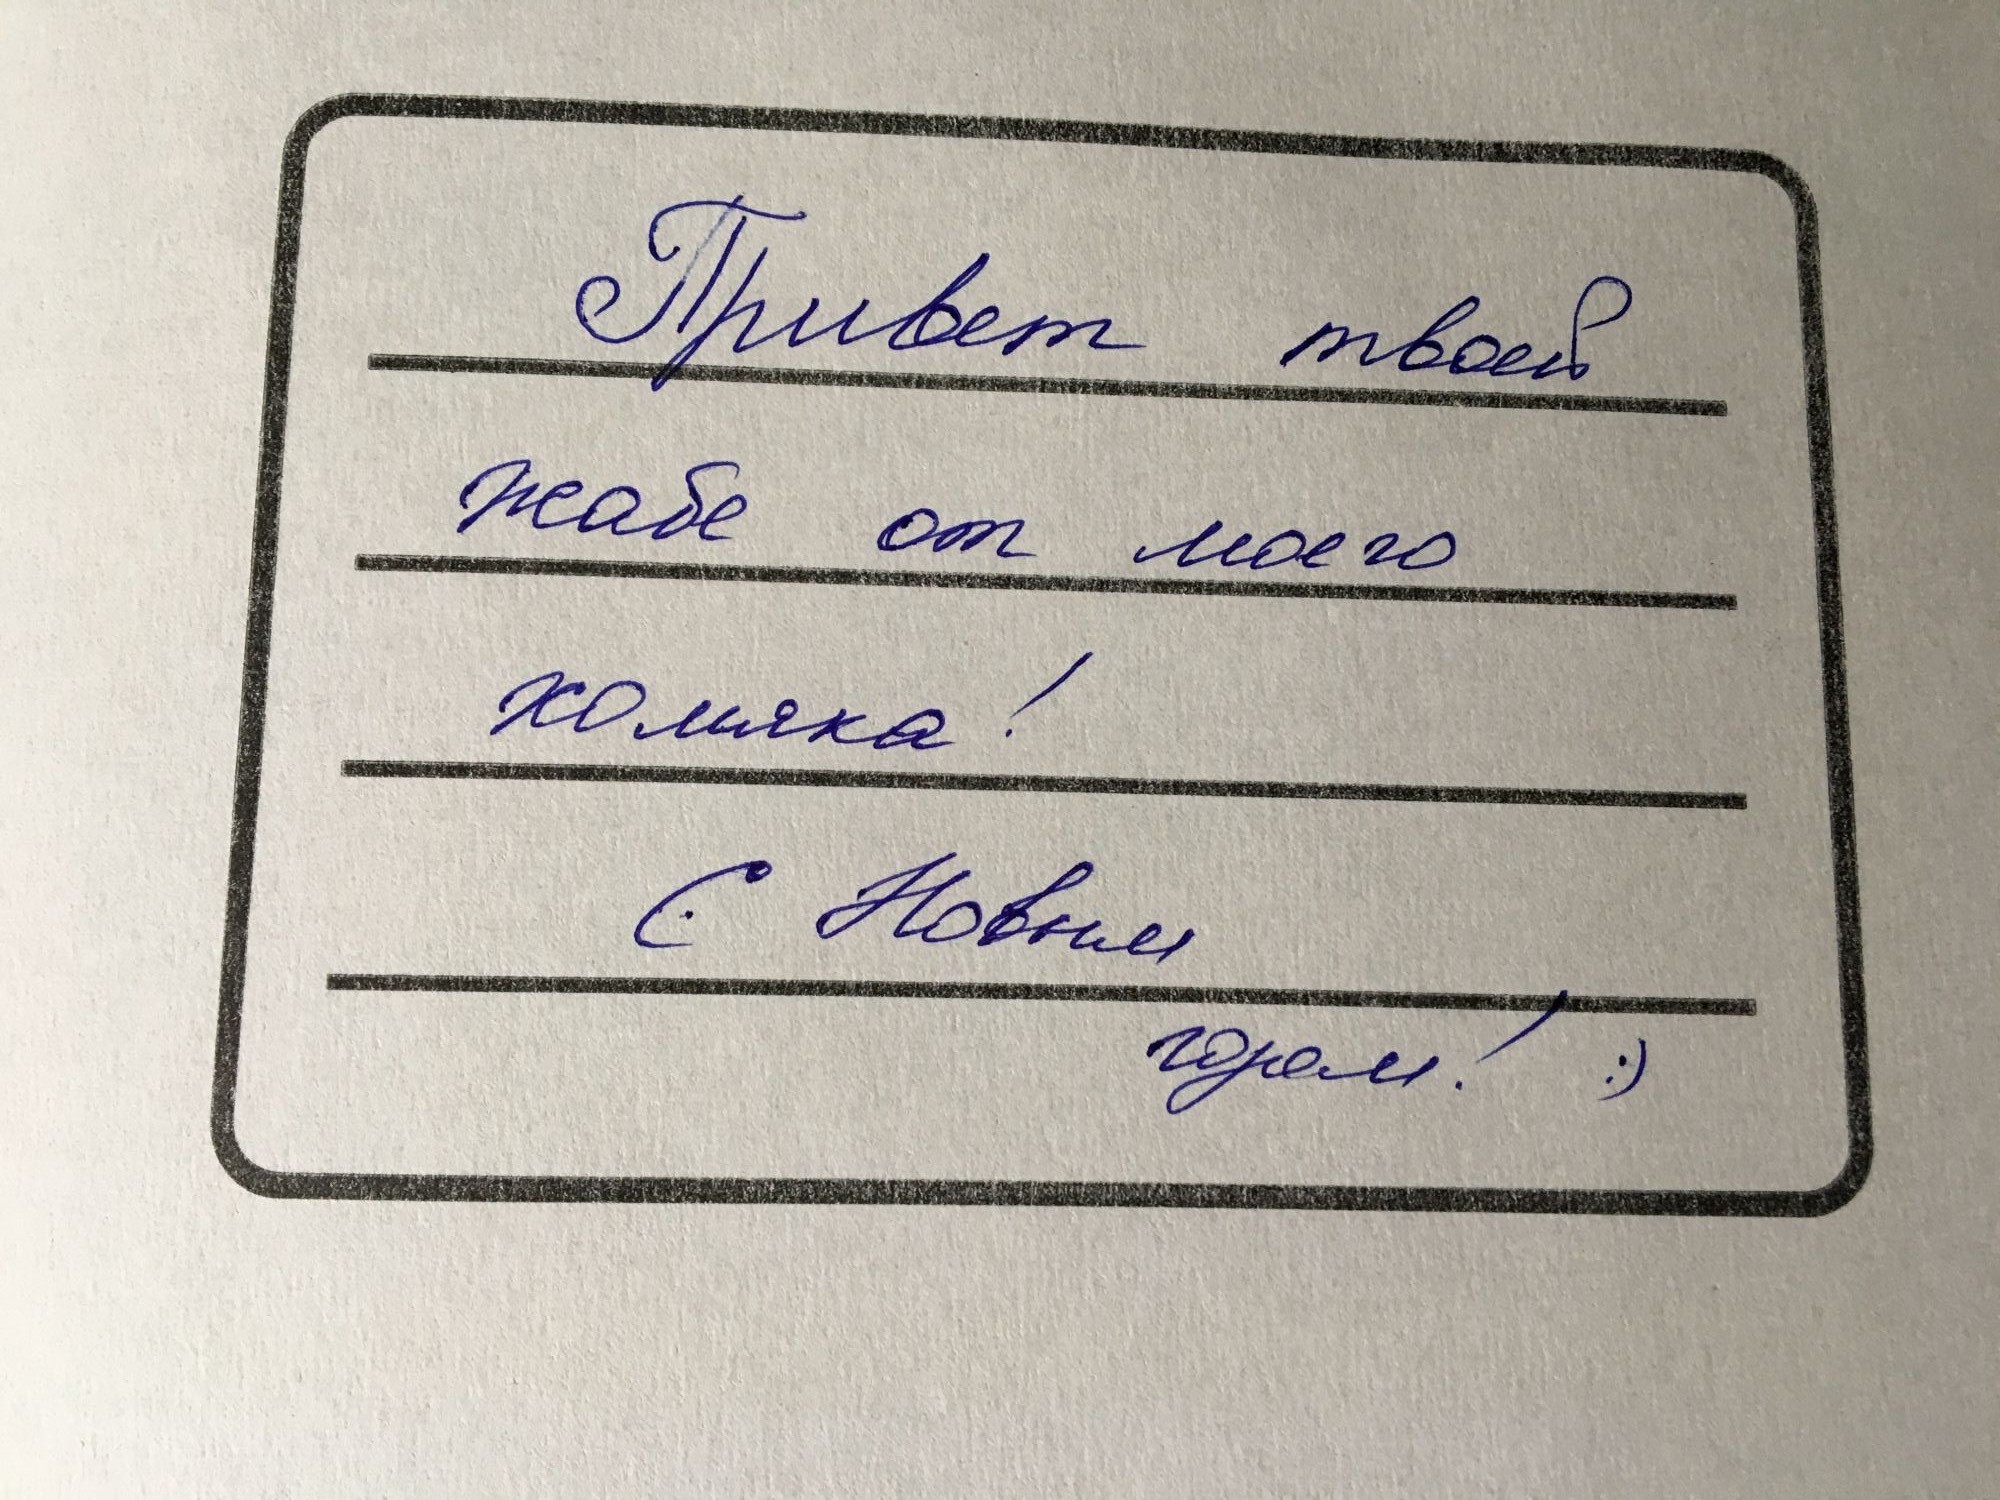 Привет твоей
жабе от моего
хомяка!
С Новым
годом! :)